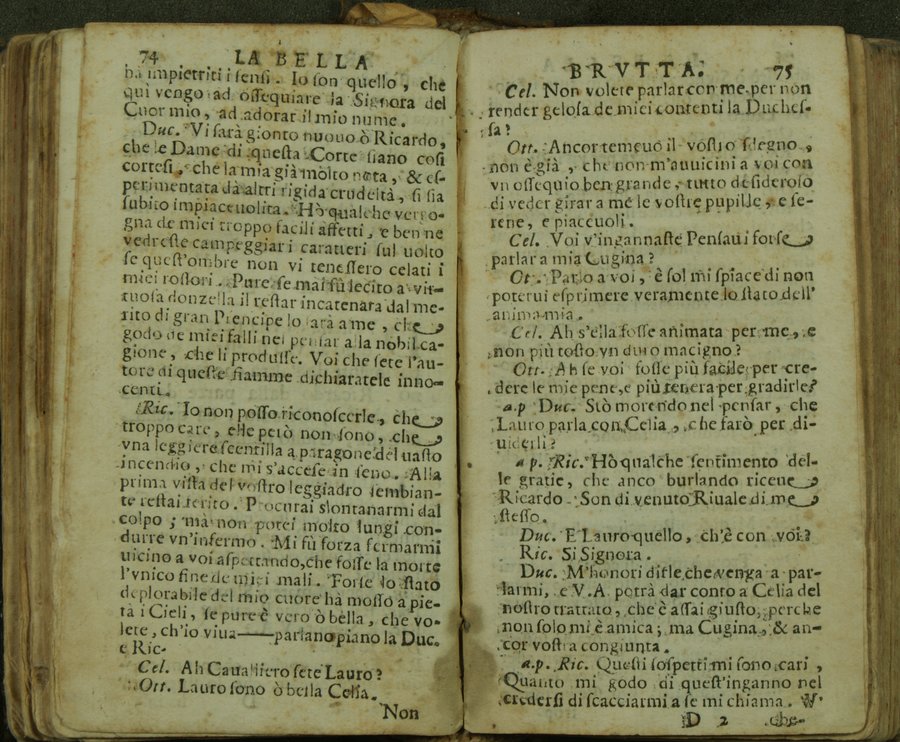 74 LA BELLA
ha impietriti i sensi. Io son quello, che
qui vengo ad ossequiare la Signora del
Cuor mio, ad adorar il mio nume.
Duc. Vi sarà gionto nuouo ò Ricardo,
che le Dame di questa Corte siano così
cortesi, che la mia già molto nota, & es-
perimentata da altri rigida crudeltà, si sia
subito impiaceuolita. Hò qualche vergo-
gna de miei troppo facili affetti, e ben ne
vedreste campeggiar i caratteri sul uolto
se quest'ombre non vi tenessero celati i
miei rossori. Pure se mai fù lecito a vir-
tuosa donzella il restar incatenata dal me-
rito di gran Prencipe lo sarà a me, che
godo de miei falli nel pensar a la nobil ca-
gione, che li produsse. Voi che sete l'au-
tore di queste fiamme dichiaratele inno-
centi.
Ric. Io non posso riconoscerle, che
troppo care, elle però non sono, che
vna leggiere scentilla a paragone del uasto
incendio, che mi s'accese in seno. Alla
prima vista del vostro leggiadro sembian-
te restai ferito. Procurai slontanarmi dal
colpo; mà non potei molto lungi con-
durre vn'infermo. Mi fù forza fermarmi
uicino a voi aspettando, che fosse la morte
l'vnico fine de miei mali. Forse lo stato
deplorabile del mio cuore hà mosso a pie-
tà i Cieli, se pure è vero ò bella, che vo-
lete, ch'io viua——parlano piano la Duc.
e Ric.
Cel. Ah Caualliero sete Lauro?
Ott. Lauro sono ò bella Celia.
Non
BRVTTA. 75
Cel. Non volete parlar con me per non
render gelosa de miei contenti la Duches-
sa?
Ott. Ancor temeuo il vostro sdegno,
non è già, che non m'auuicini a voi con
vn ossequio ben grande, tutto desideroso
di veder girar a me le vostre pupille, e se-
rene, e piaceuoli.
Cel. Voi v'ingannaste Pensaui forse
parlar a mia Cugina?
Ot. Parlo a voi, è sol mi spiace di non
poterui esprimere veramente lo stato dell'
anima mia.
Cel. Ah s'ella fosse animata per me, e
non più tosto vn duro macigno?
Ott. Ah se voi fosse più facile per cre-
dere le mie pene, e più tenera per gradirle?
a.p Duc. Stò morendo nel pensar, che
Lauro parla con Celia, che farò per di-
uiderli?
a p. Ric. Hò qualche sentimento del-
le gratie, che anco burlando riceue
Ricardo. Son diuenuto Riuale di me
stesso.
Duc. E Lauro quello, ch'è con voi?
Ric. Si Signora.
Duc. M'honori disle che venga a par-
larmi, e V. A. potrà dar conto a Celia del
nostro trattato, che è assai giusto, perche
non solo mi è amica; ma Cugina, & an-
cor vostra congiunta.
a.p. Ric. Questi sospetti mi sono cari,
Quanto mi godo di quest'inganno nel
credersi di scacciarmi a se mi chiama. V'
D 2 che-